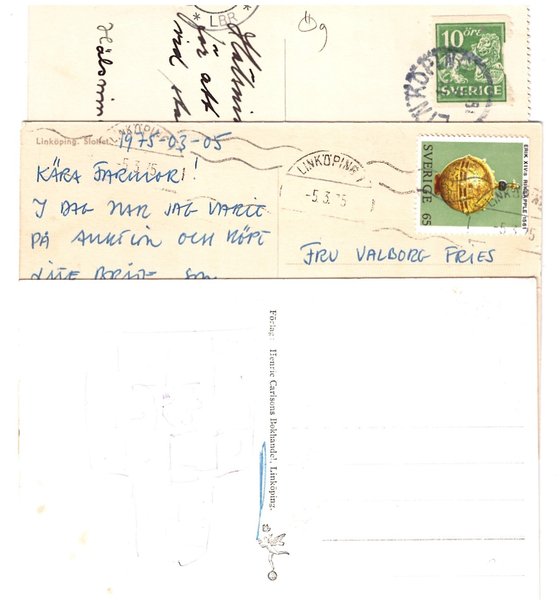 LBR
10 ÖRE
SVERIGE
LINKÖPING
för att
Linköping. Slottet.
1975-03-05
LINKÖPING
-5.3.75
KÄRA FARMOR!
I DAG HAR JAG VARIT
PÅ AUKTION OCH KÖPT
LINKÖPING 1
-5.3.75
ERIK XIV:S RIKSÄPPLE 1561
SVERIGE 65
-5.3.75
FRU VALBORG FRIES
Förlag: Henric Carlsons Bokhandel, Linköping.